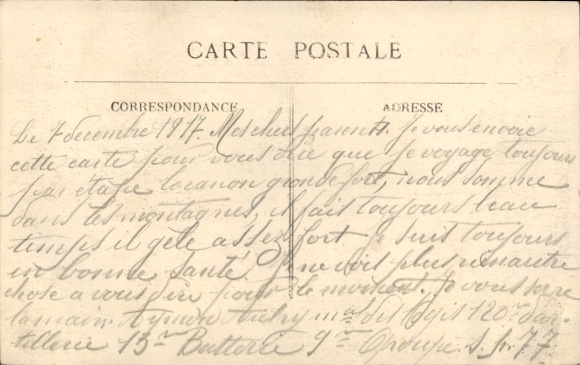 CARTE POSTALE
CORRESPONDANCE
ADRESSE
Le 7 decembre 1917. Mes chers parents. Je vous envoie
cette carte pour vous dire que je voyage toujours
par étape le canon gronde fort, nous somme
dans les montagnes, il fait toujours beau
temps il gèle assez fort je suit toujours
en bonne santé. Je ne vois plus rien autre
chose a vous dire pour le moment. Je vous serre
la main. Aymon mal des logis 120e d'ar
tillerie 13me Batterie 9me Groupe S.P. 77